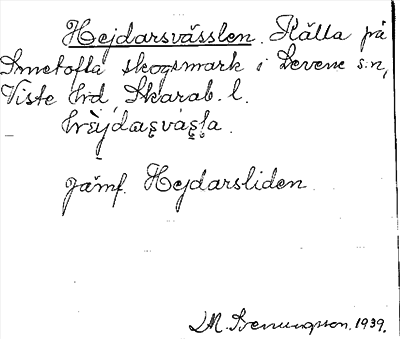 Hejdarsvässlen. Källa på
Smetofta skogsmark i Levene s:n,
Viste hrd, Skarab. l.
hræ̀jdaʂvȧʂl̥a.
jämf. Hejdarsliden.
1939.